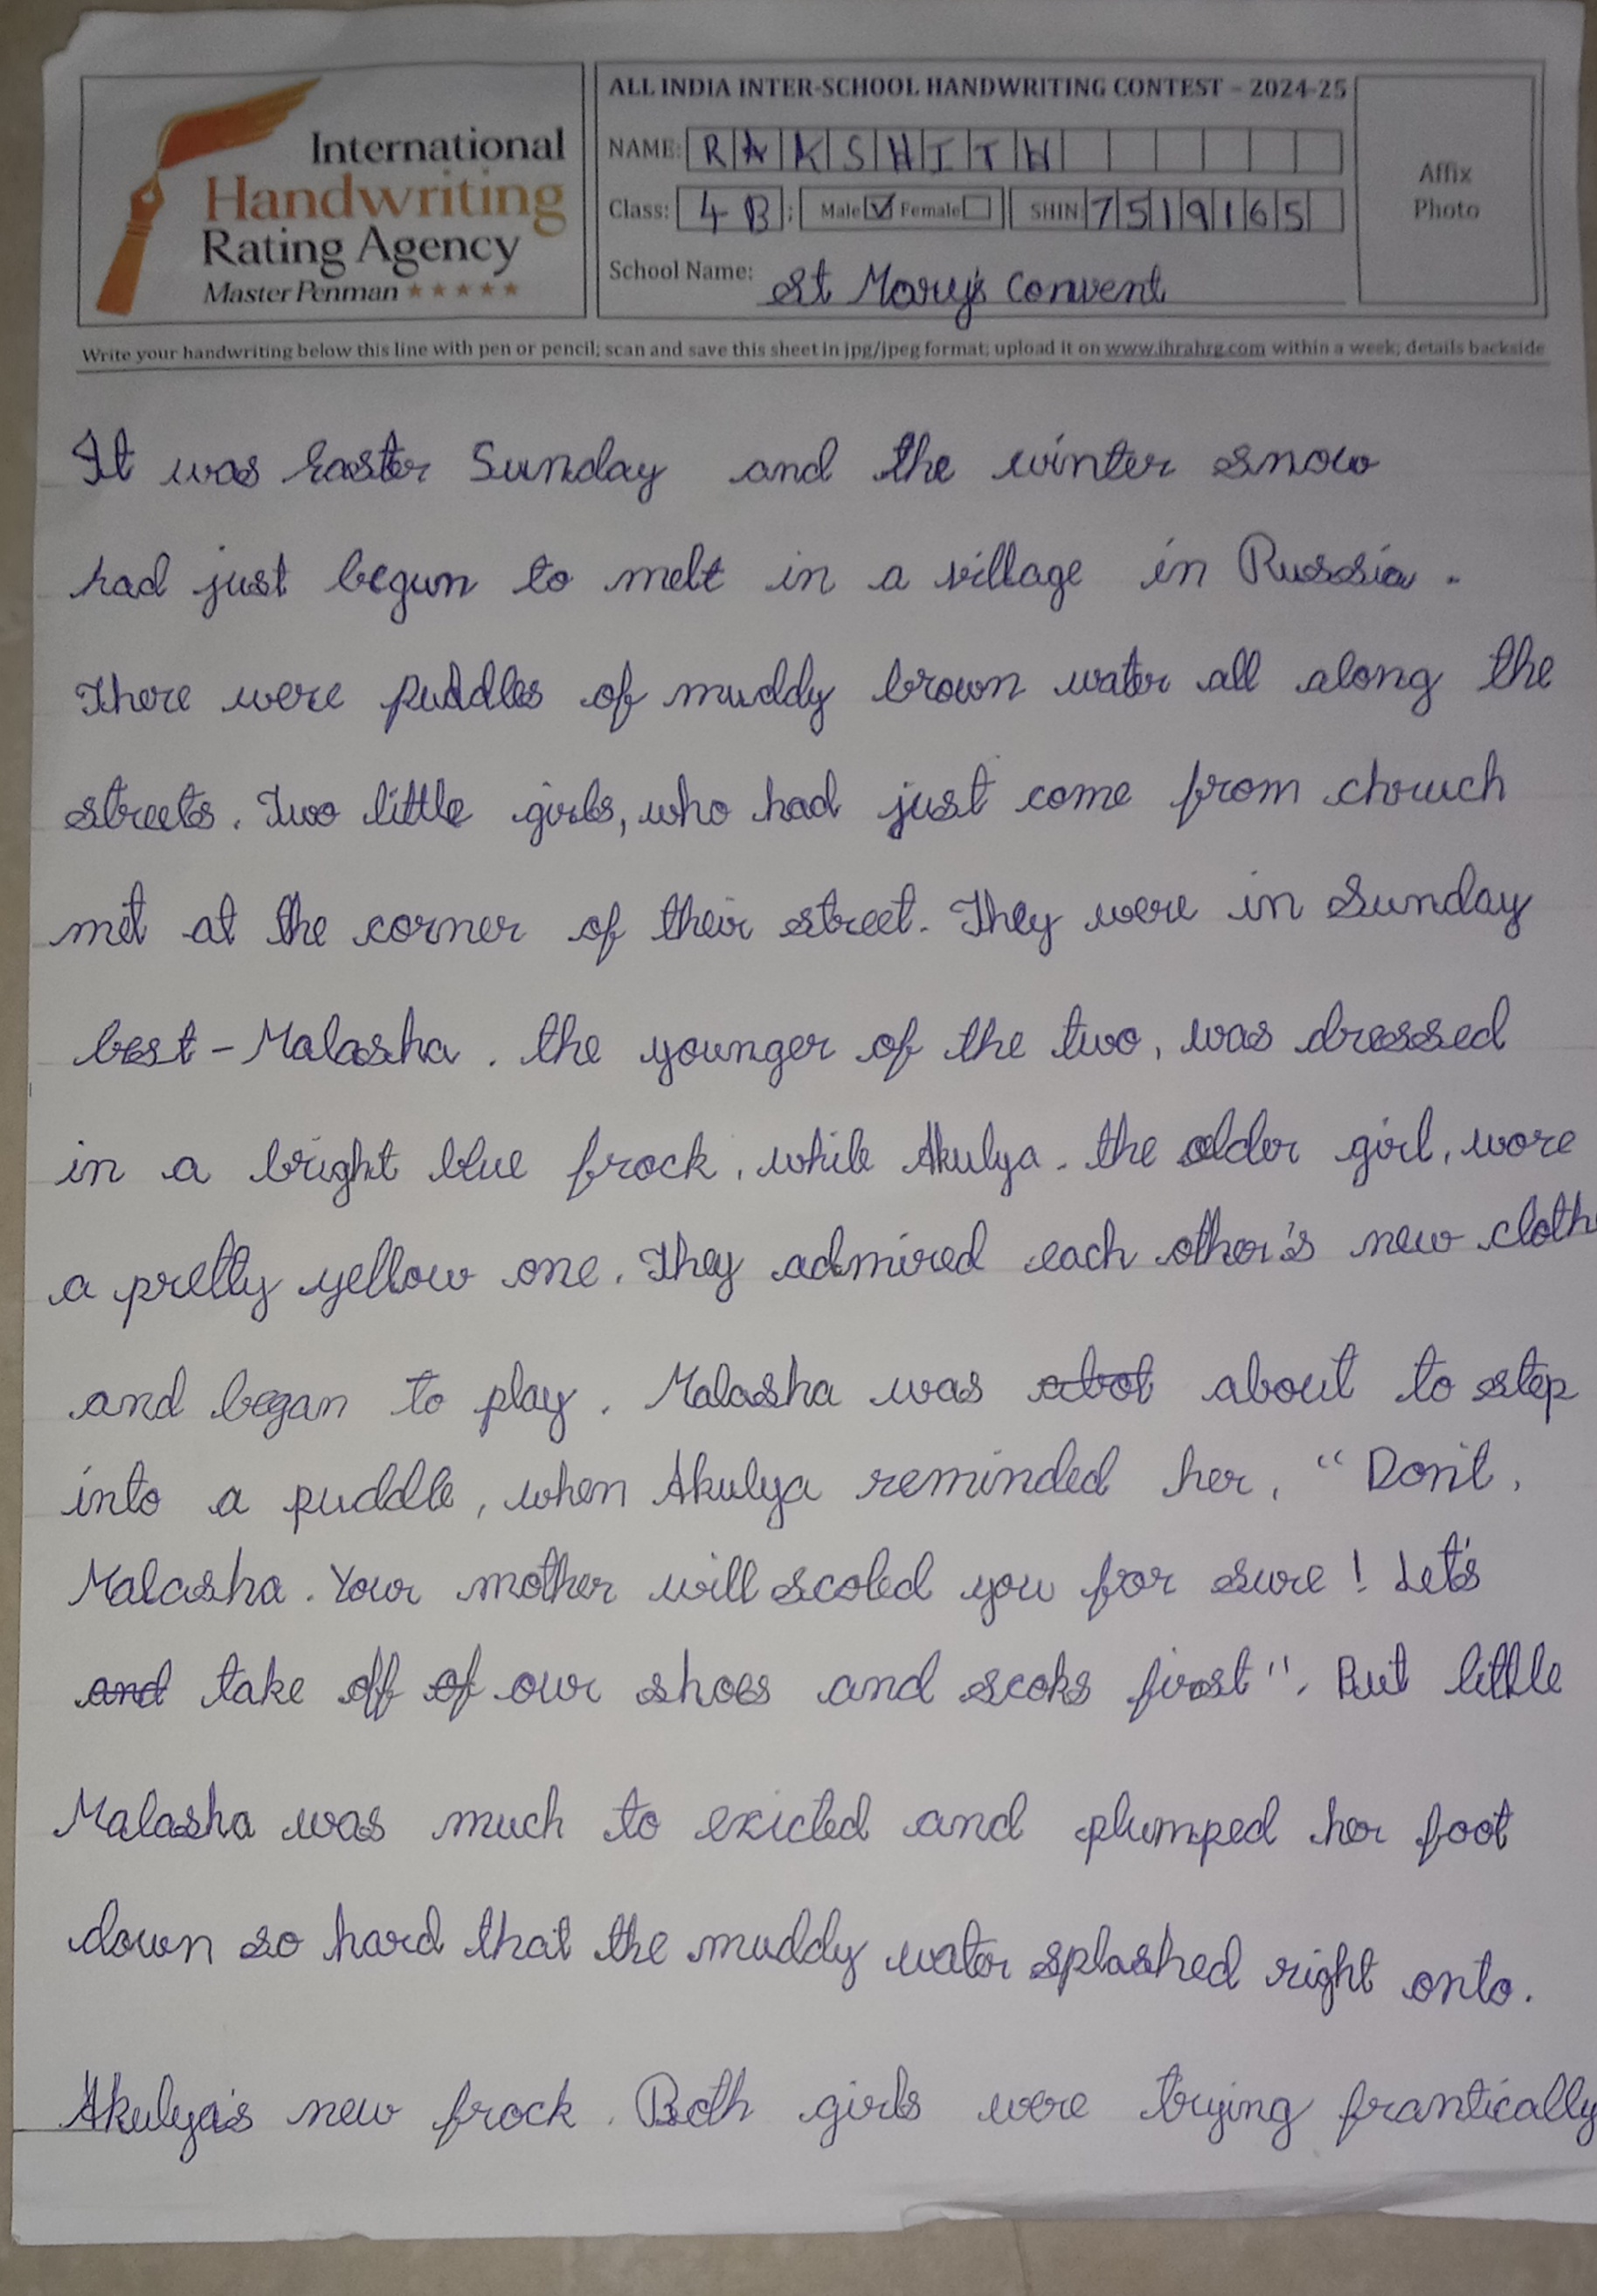 International
Handwriting
Rating Agency
Master Penman ★★★★★
ALL INDIA INTER-SCHOOL HANDWRITING CONTEST – 2024-25
NAME: RAKSHITH
Class: 4 B ; Male ☑ Female ☐ SHIN: 7519165
School Name: St Mary's Convent
Affix
Photo
Write your handwriting below this line with pen or pencil; scan and save this sheet in jpg/jpeg format; upload it on www.ihrahrg.com within a week; details backside
It was Easter Sunday and the winter snow
had just begun to melt in a village in Russia.
There were puddles of muddy brown water all along the
streets. Two little girls, who had just come from chruch
met at the corner of their street. They were in Sunday
best - Malasha. the younger of the two, was dressed
in a bright blue frock, while Akulya. the older girl, wore
a pretty yellow one. They admired each other's new cloth
and began to play. Malasha was abot about to step
into a puddle, when Akulya reminded her, "Don't,
Malasha. Your mother will scoled you for sure! Let's
and take off of our shoes and scoks first". But little
Malasha was much to exicted and plumped her foot
down so hard that the muddy water splashed right onto.
Akulya's new frock. Both girls were trying frantically